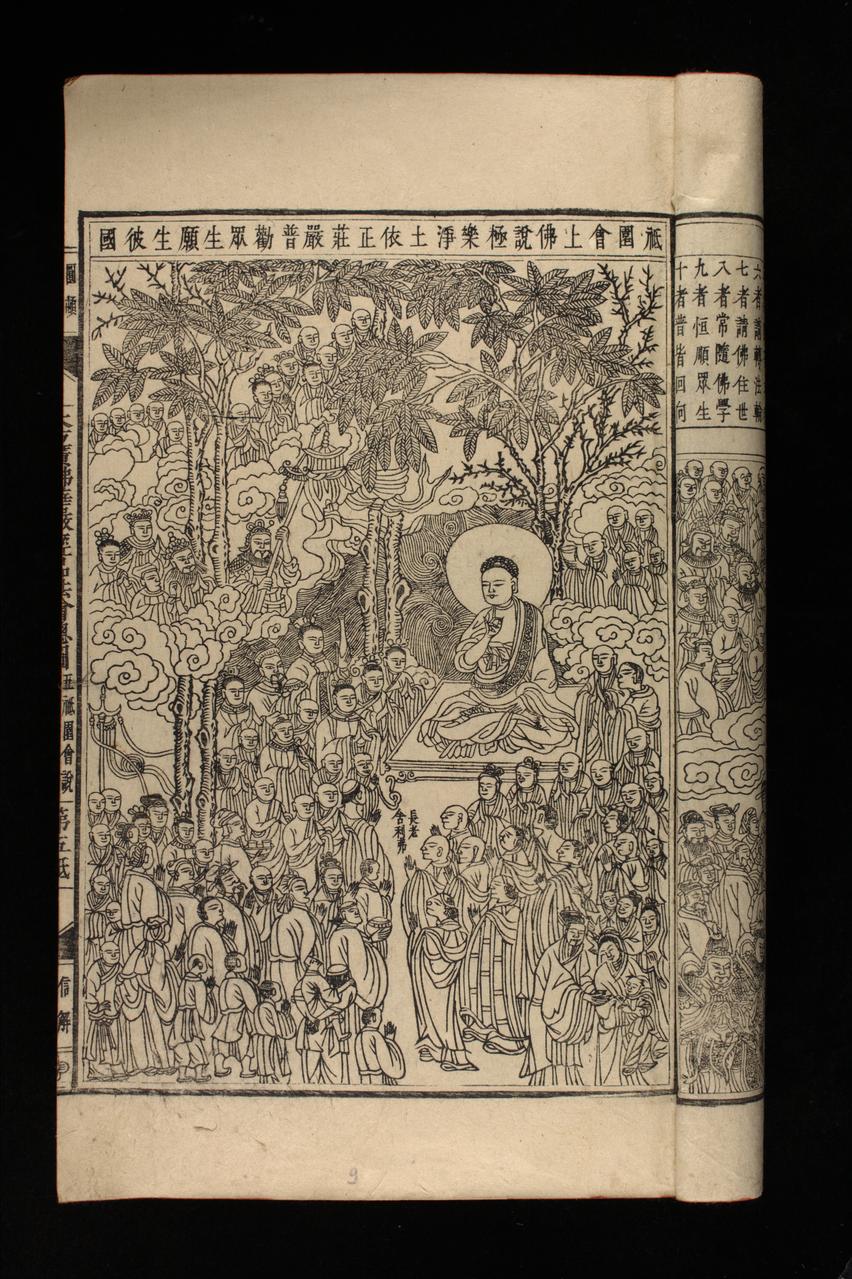 六者請轉法輪
七者請佛住世
八者常隨佛學
九者恒順眾生
十者普皆回向
祇園會上佛說極樂淨土依正莊嚴普勸眾生願生彼國
長老
舍利弗
祇園會說
信解
9